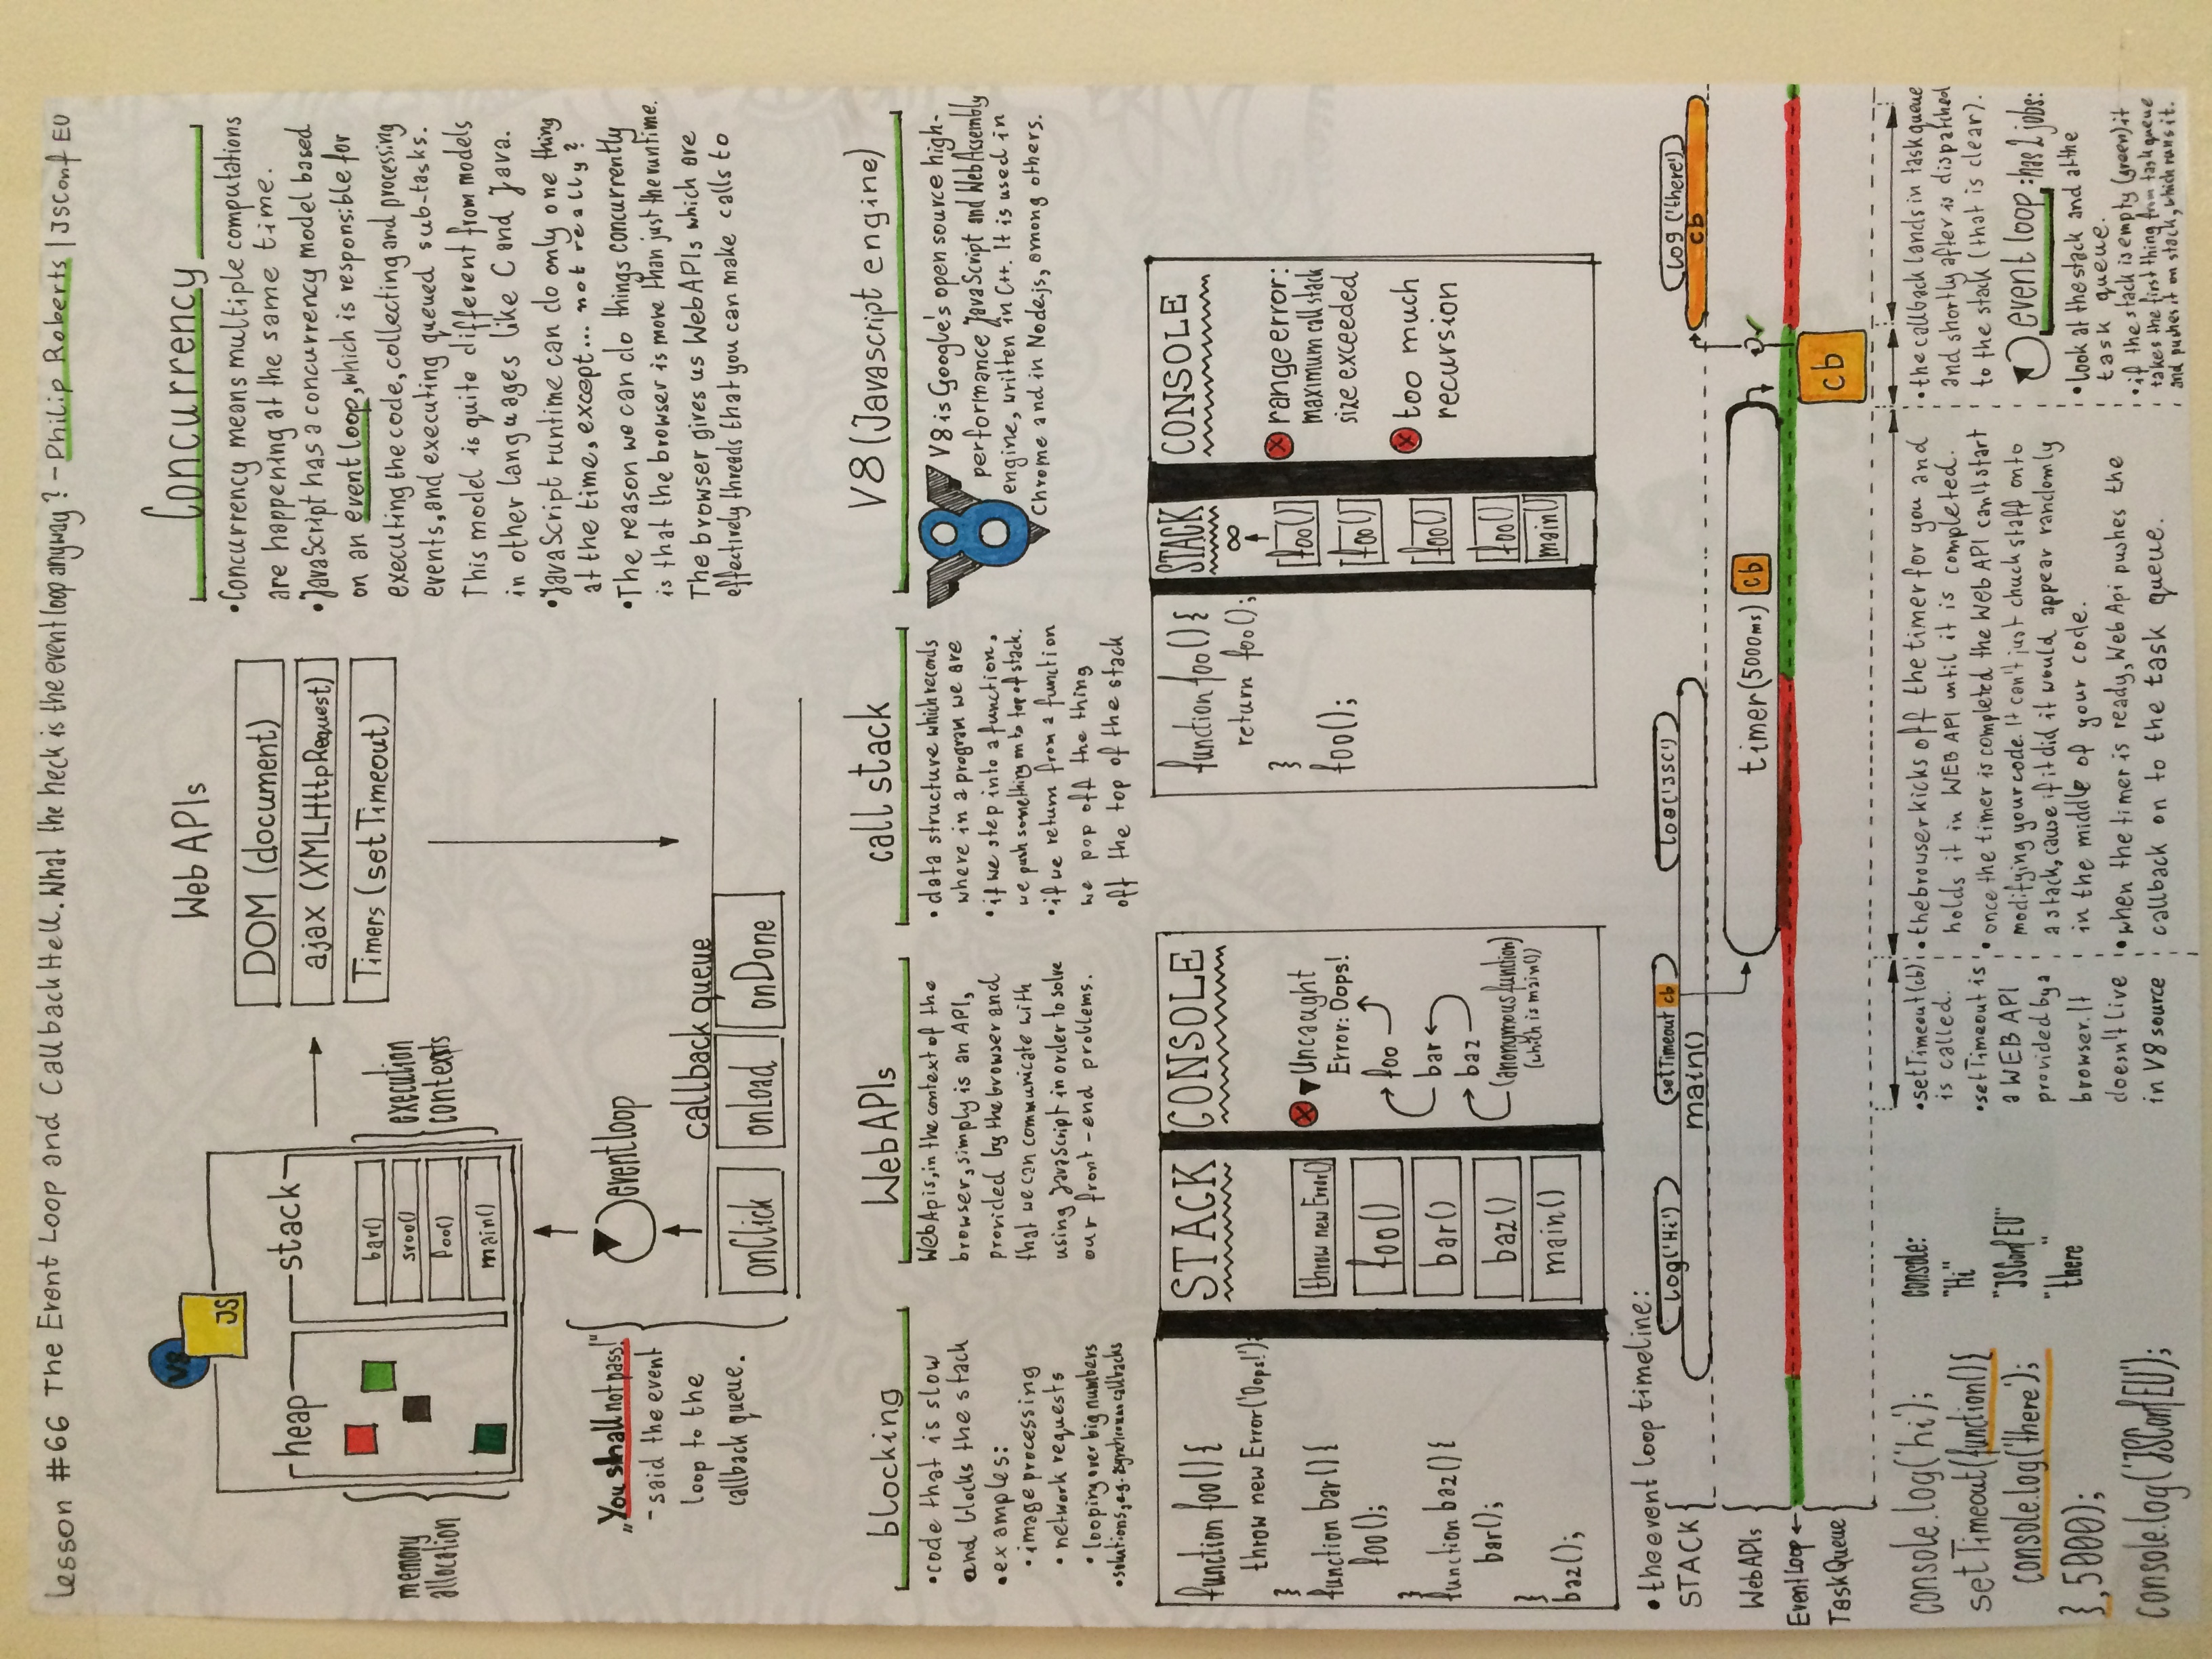 Lesson #66 The Event Loop and Callback Hell. What the heck is the event loop anyway? - Philip Roberts | JSConf EU
V8
JS
heap
stack
memory
allocation
bar()
sroo()
foo()
main()
execution
contexts
Web APIs
DOM (document)
ajax (XMLHttpRequest)
Timers (setTimeout)
„You shall not pass!"
- said the event
loop to the
callback queue.
event loop
callback queue
onClick
onLoad
onDone
Concurrency
•Concurrency means multiple computations
are happening at the same time.
•JavaScript has a concurrency model based
on an event loop, which is responsible for
executing the code, collecting and processing
events, and executing queued sub-tasks.
This model is quite different from models
in other languages like C and Java.
•JavaScript runtime can do only one thing
at the time, except... not really?
•The reason we can do things concurrently
is that the browser is more than just the runtime.
The browser gives us WebAPIs which are
effectively threads that you can make calls to
blocking
•code that is slow
and blocks the stack
•examples:
•image processing
•network requests
•looping over big numbers
•solutions, e.g. asynchronous callbacks
WebAPIs
WebApis, in the context of the
browser, simply is an API,
provided by the browser and
that we can communicate with
using JavaScript in order to solve
our front-end problems.
call stack
•data structure which records
where in a program we are
•if we step into a function,
we push something on to top of stack.
•if we return from a function
we pop off the thing
off the top of the stack
V8 (Javascript engine)
8
V8 is Google's open source high-
performance JavaScript and WebAssembly
engine, written in C++. It is used in
Chrome and in Node.js, among others.
function foo() {
throw new Error('Oops!');
}
function bar() {
foo();
}
function baz() {
bar();
}
baz();
STACK
throw new Error()
foo()
bar()
baz()
main()
CONSOLE
▼Uncaught
Error: Oops!
foo
bar
baz
(anonymous function)
(which is main())
function foo() {
return foo();
}
foo();
STACK
∞
foo()
foo()
foo()
foo()
main()
CONSOLE
range error:
maximum call stack
size exceeded
too much
recursion
•the event loop timeline:
STACK
log('Hi')
setTimeout cb
log('JSC')
main()
log('there')
cb
WebAPIs
timer(5000ms) cb
Event Loop
Task Queue
cb
console.log('hi');
setTimeout(function(){
console.log('there');
},5000);
console.log('JSConfEU');
console:
"Hi"
"JSConf EU"
"there"
•setTimeout(cb)
is called.
•setTimeout is
a WEB API
provided by a
browser. It
doesn't live
in V8 source
•the browser kicks off the timer for you and
holds it in WEB API until it is completed.
•once the timer is completed the Web API can't start
modifying your code. It can't just chuck staff onto
a stack, cause if it did it would appear randomly
in the middle of your code.
•when the timer is ready, Web Api pushes the
callback on to the task queue.
•the callback lands in task queue
and shortly after is dispatched
to the stack (that is clear).
event loop: has 2 jobs:
•look at the stack and at the
task queue.
•if the stack is empty (green) it
takes the first thing from task queue
and pushes it on stack, which runs it.